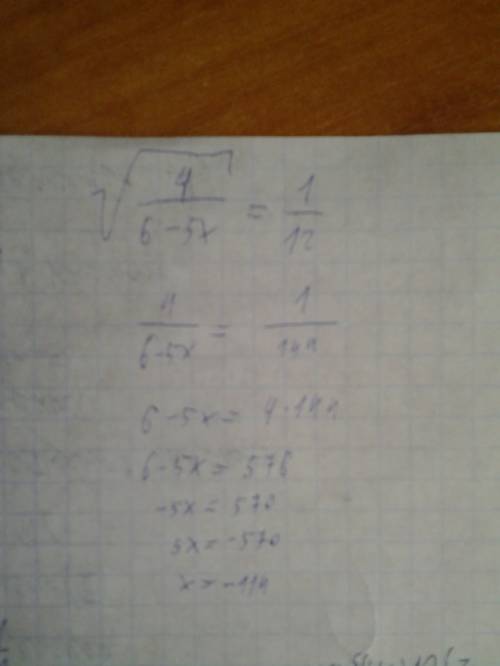 √(4/(6-5x)) = 1/12
4/(6-5x) = 1/144
6-5x = 4·144
6-5x = 576
-5x = 570
5x = -570
x = -114